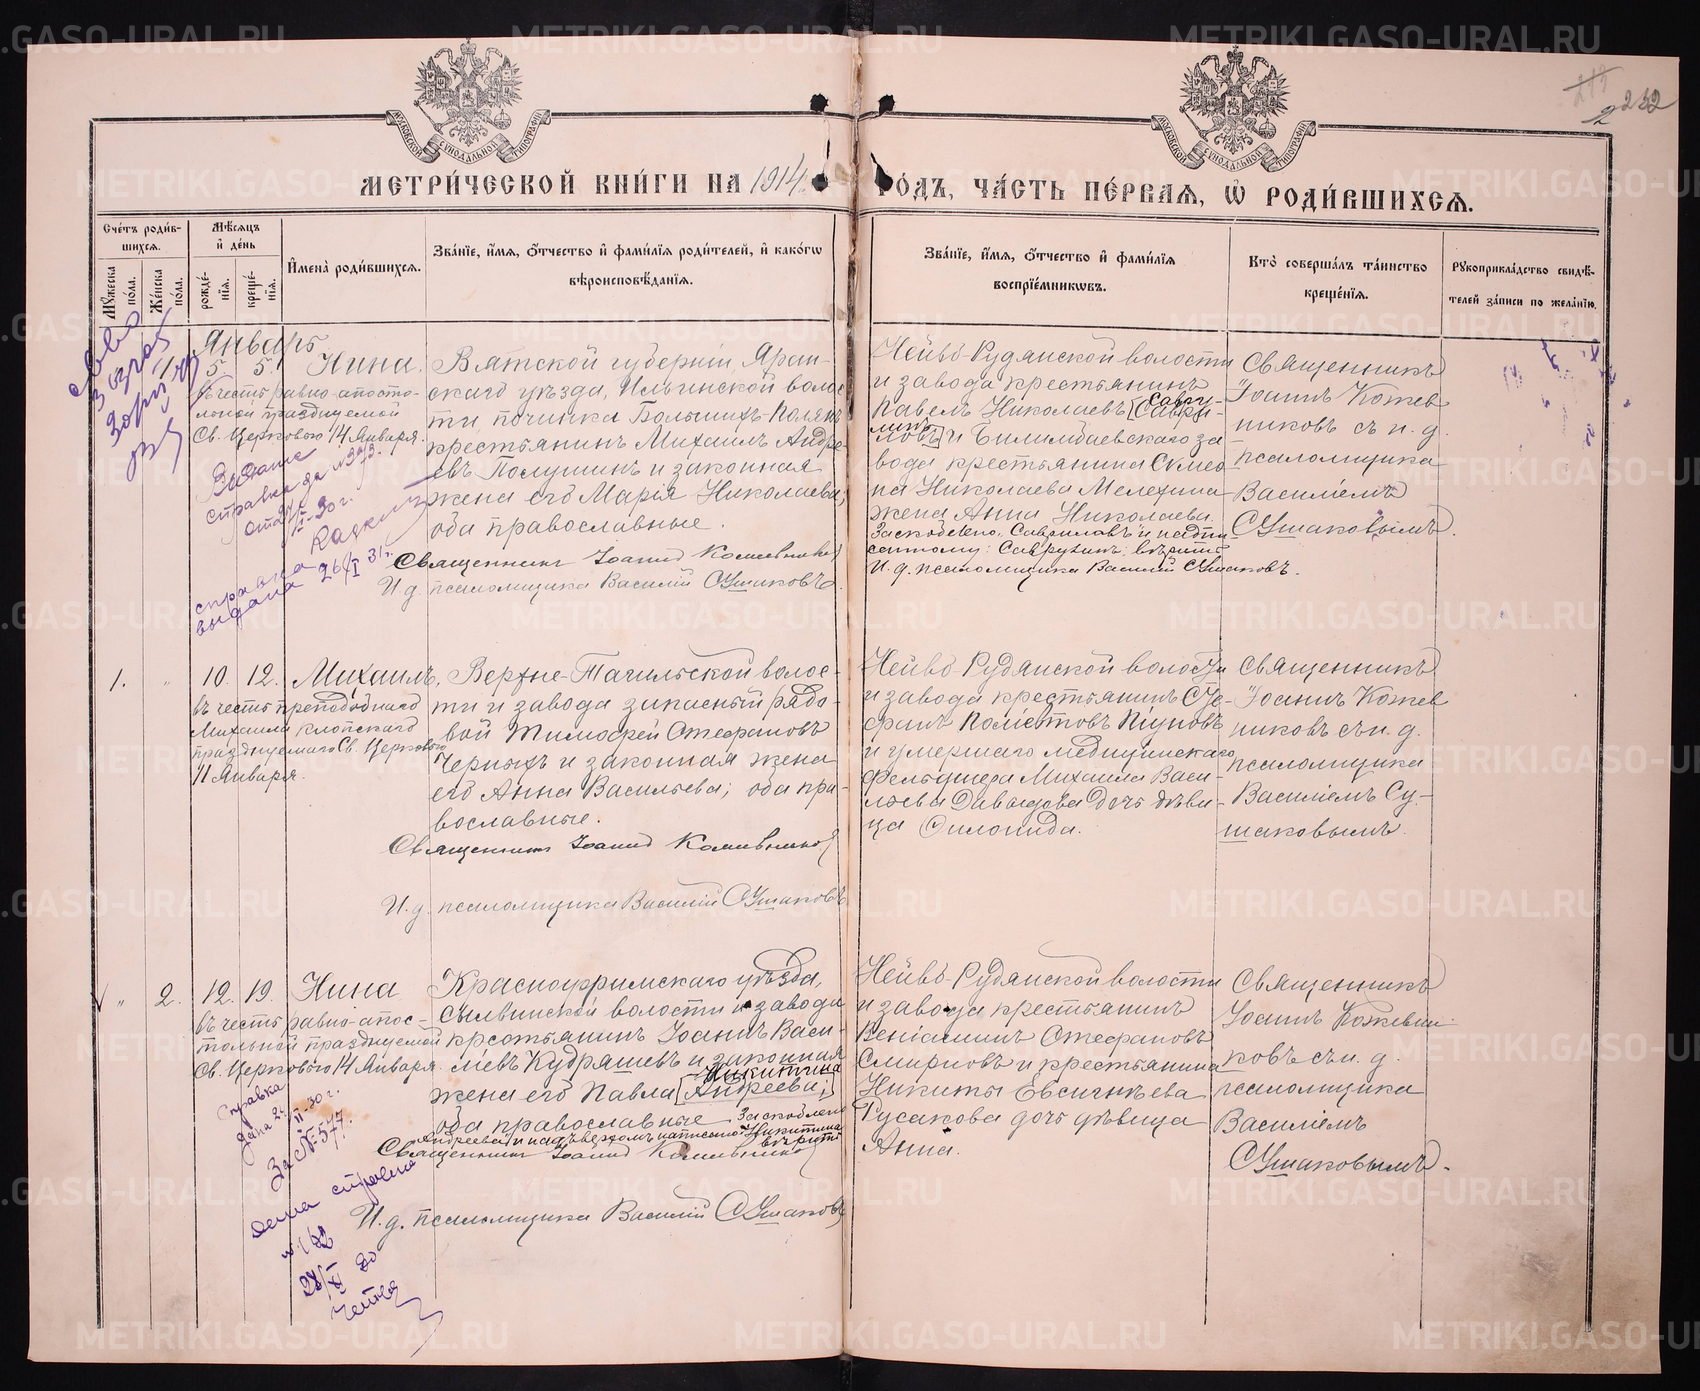 232
МОСКОВСКОЙ СѴНОДАЛЬНОЙ ТИПОГРАФІИ
МОСКОВСКОЙ СѴНОДАЛЬНОЙ ТИПОГРАФІИ
МЕТРИ́ЧЕСКОЙ КНИ́ГИ НА 1914 ГО́ДЪ, ЧА́СТЬ ПЕ́РВАѦ, Ѡ҆ РОДИ́ВШИХСѦ.
Сче́тъ роди́в-
шихсѧ.
Мꙋ́жеска по́ла.
Же́нска по́ла.
Мѣ́сѧцъ
и҆ де́нь
рожде́-
нїѧ.
креще́-
нїѧ.
И҆мена̀ роди́вшихсѧ.
Зва́нїе, и҆́мѧ, ѻ҆́тчество и҆ фами́лїѧ роди́телей, и҆ како́гѡ
вѣроисповѣ́данїѧ.
Зва́нїе, и҆́мѧ, ѻ҆́тчество и҆ фами́лїѧ
воспрїе́мникѡвъ.
Кто̀ соверша́лъ та́инство
креще́нїѧ.
Рꙋкоприкла́дство свидѣ́-
телей за́писи по жела́нїю.
Январь
1 5. 5. Нина.
въ честь равно-апосто-
льной празднуемой
Св. Церковью 14 Января.
Вятской губерніи, Яран-
скаго уѣзда, Ильинской волос
ти, починка Большихъ-Полянъ
крестьянинъ Михаилъ Андре-
евъ Полушинъ и законная
жена его Марія Николаева,
оба православные.
Священникъ Іоаннъ Кожевниковъ
И. д. псаломщика Василій Сушаковъ.
Нейво-Рудянской волости
и завода крестьянинъ
Павелъ Николаевъ [Саври-
ловъ] и Билимбаевскаго за
вода крестьянина Симео
на Николаева Мелехина
жена Анна Николаева.
И. д. псаломщика Василій Сушаковъ.
Священникъ
Іоаннъ Кожев
никовъ съ и. д.
псаломщика
Василіемъ
Сушаковымъ.
справка
выдана 26/I 31 г.
1. " 10. 12. Михаилъ,
въ честь преподобнаго
Михаила Клопскаго
празднуемаго Св. Церковью
11 Января.
Верхне-Тагильской волос-
ти и завода запасный рядо-
вой Тимофей Стефановъ
Черныхъ и законная жена
его Анна Васильева; оба пра-
вославные.
Священникъ Іоаннъ Кожевниковъ
И. д. псаломщика Василій Сушаковъ
Нейво-Рудянской волости
и завода крестьянинъ Сте-
фанъ Поліектовъ Піуновъ
и умершаго медицинскаго
фельдшера Михаила Васи-
льева Давыдова дочь дѣви-
ца Силонида.
Священникъ
Іоаннъ Кожев
никовъ съ и. д.
псаломщика
Василіемъ Су-
шаковымъ.
" 2. 12. 19. Нина
въ честь равно-апос-
тольной празднуемой
Св. Церковью 14 Января.
Красноуфимскаго уѣзда,
Сылвинской волости и завода
крестьянинъ Іоаннъ Васи-
льевъ Кудряшевъ и законная
Никитина
жена его Павла [Андреева;]
оба православные. Заскоблено
Андреева и надъ верхомъ написано: Никитина
вѣрить
Священникъ Іоаннъ Кожевниковъ
И. д. псаломщика Василій Сушаковъ
Нейво-Рудянской волости
и завода крестьянинъ
Веніаминъ Стефановъ
Смирновъ и крестьянина
Никиты Евсигнѣева
Гусакова дочь дѣвица
Анна.
Священникъ
Іоаннъ Кожевни
ковъ съ и. д.
псаломщика
Василіемъ
Сушаковымъ.
справка
дана 2/II-30 г.
За № 577.
METRIKI.GASO-URAL.RU